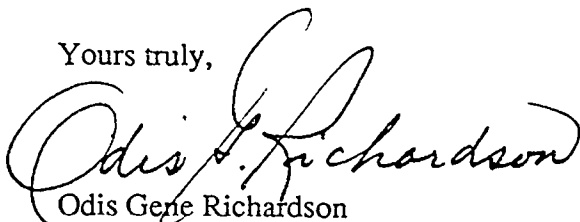 Yours truly,
Odis G. Richardson
Odis Gene Richardson